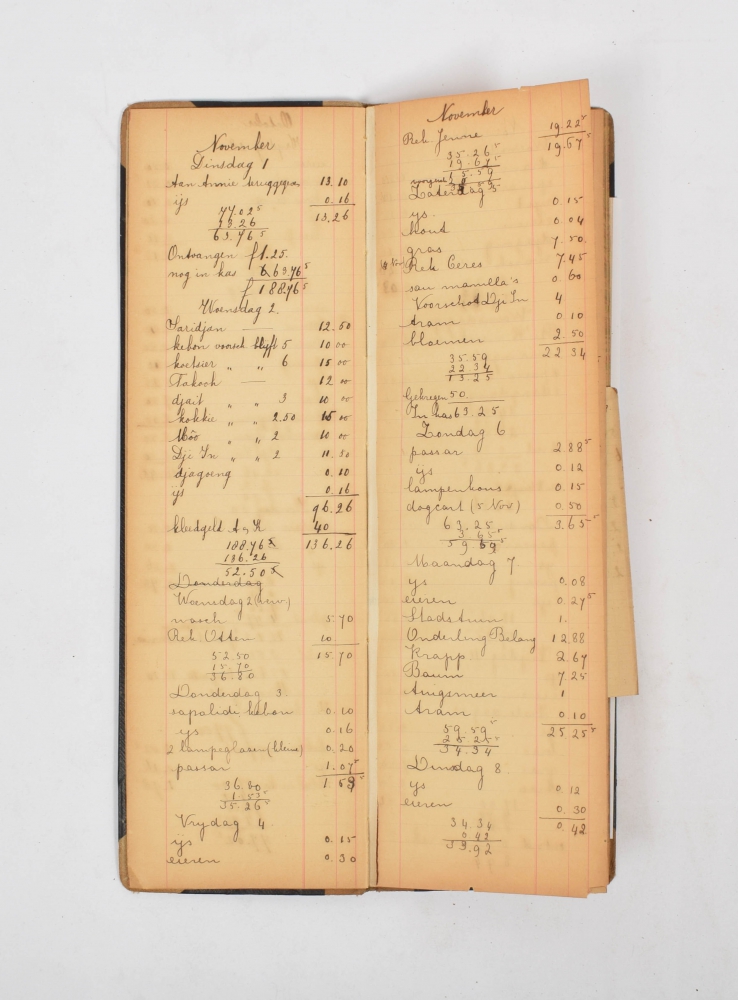 November
Dinsdag 1
Aan Annie teruggegeven 13.10
ijs 0.16
77.02⁵ 13.26
13 26
63.76⁵
Ontvangen f 125.
nog in kas 63.76⁵
f 188.76⁵
Woensdag 2.
Saridjan — 12.50
kebon voorsch. blyft 5 10 00
koetsier „ „ 6 15 00
Takoch — 12 00
djait „ „ 3 10 00
kokkie „ „ 2.50 15 00
Môo „ „ 2 10 00
Dje In „ „ 2 11.50
djagoeng 0.10
ijs 0.16
96.26
kleedgeld A. K 40
188.76⁵ 136.26
136.26
52.50
Donderdag
Woensdag 2 (verv.)
wasch 5.70
Rek. Otten 10.
52.50 15.70
15.70
36.80
Donderdag 3.
sapolidi, kebon 0.10
ijs 0.16
2 lampeglazen (kleine) 0.20
passar 1.07⁵
36.80 1.53⁵
1.53⁵
35.26⁵
Vrydag 4
ijs 0.15
eieren 0.30
November
Rek. Jenne 19.22⁵
35.26⁵ 19.67⁵
19.67⁵
15.59
Zaterdag 5
ijs. 0.15
hout 0.04
gras 7.50
Rek Ceres 7.45
sau manilla's 0.60
Voorschot Dje In 4
Aram 0.10
bloemen 2.50
35.59 22 34
22 34
13 25
Gekregen 50.
In kas 63.25
Zondag 6
passar 2.88⁵
ijs 0.12
lampenkous 0.15
dogcart (5 Nov) 0.50
63.25 3.65⁵
3 65⁵
59 59⁵
Maandag 7
ijs 0.08
eieren 0.27⁵
Stadstuin 1.
Onderling Belang 12.88
Krapp 2.67
Baum 7.25
1
Aram 0.10
59.59⁵ 25 25⁵
25 25⁵
34.34
Dinsdag 8
ijs 0.12
eieren 0.30
34 34 0.42
0 42
33.92